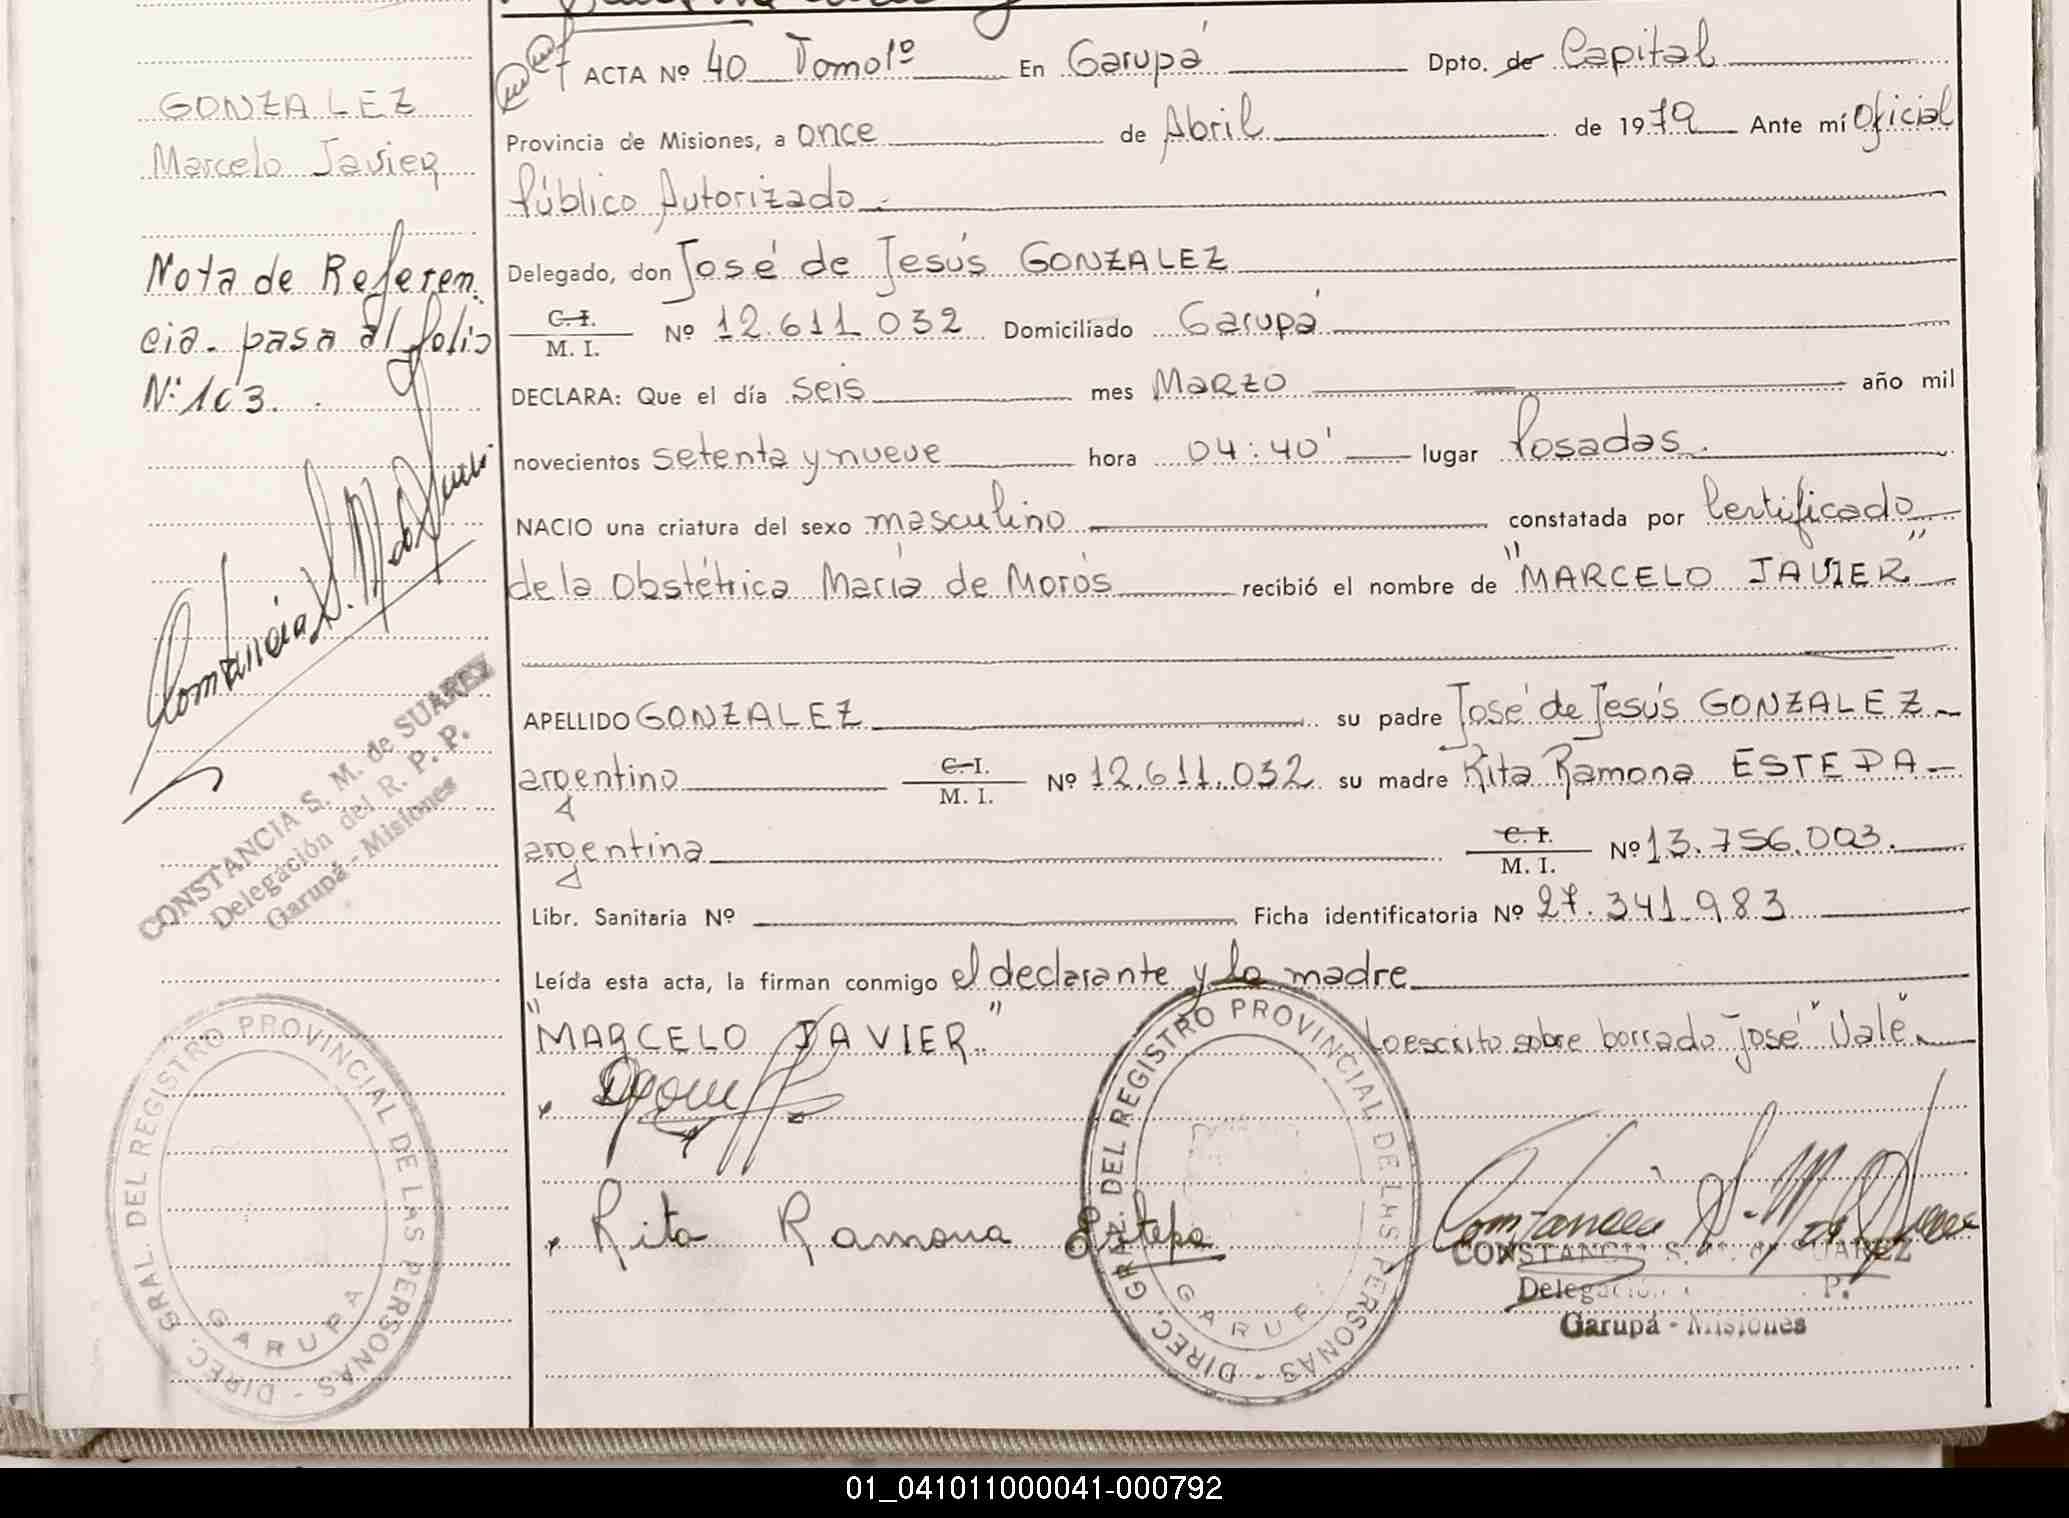 GONZALEZ
Marcelo Javier
Nota de Referen
cia. pasa al folio
Nº 103.
CONSTANCIA S. M. de SUAREZ
Delegación del R. P. P.
Garupá - Misiones
DIREC. GRAL. DEL REGISTRO PROVINCIAL DE LAS PERSONAS -
GARUPA
ACTA Nº 40 Tomo 1º En Garupá Dpto. de Capital
Provincia de Misiones, a once de Abril de 1979 Ante mí Oficial
Público Autorizado.
Delegado, don José de Jesús GONZALEZ
C. I.
M. I. Nº 12.611.032 Domiciliado Garupá
DECLARA: Que el día seis mes Marzo año mil
novecientos setenta y nueve hora 04:40' lugar Posadas.
NACIO una criatura del sexo masculino constatada por Certificado
de la Obstétrica María de Morós recibió el nombre de "MARCELO JAVIER"
APELLIDO GONZALEZ su padre José de Jesús GONZALEZ
argentino C. I.
M. I. Nº 12.611.032 su madre Rita Ramona ESTEPA
argentina C. I.
M. I. Nº 13.756.003.
Libr. Sanitaria Nº Ficha identificatoria Nº 27.341.983
Leída esta acta, la firman conmigo el declarante y la madre
"MARCELO JAVIER" Lo escrito sobre borrado "José" Vale.
Rita Ramona Estepa
DIREC. GRAL. DEL REGISTRO PROVINCIAL DE LAS PERSONAS -
GARUP
CONSTANCIA S. M. de SUAREZ
Delegación P.
Garupá - Misiones
01_041011000041-000792